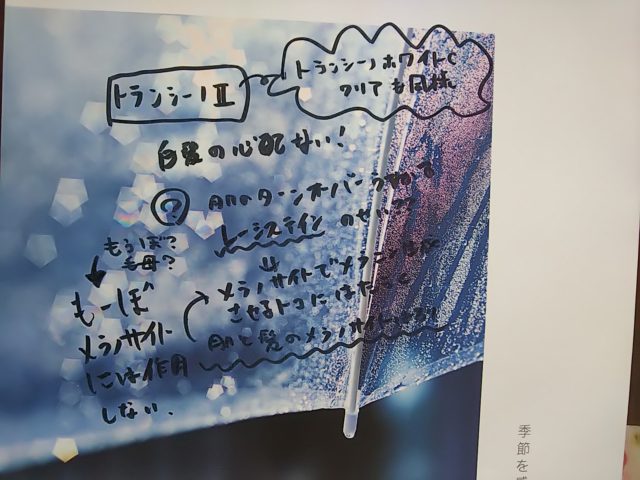 トランシーノⅡ
トランシーノホワイトC
クリアも同様
白髪の心配ない!
? 肌のターンオーバー
L-システイン のせい??
↓
メラノサイトでメラニン
させるトコにはたらく
肌と髪のメラノサイト
もうぼ?
毛母?
↓
もーぼ
メラノサイト
には作用
しない.
季節を